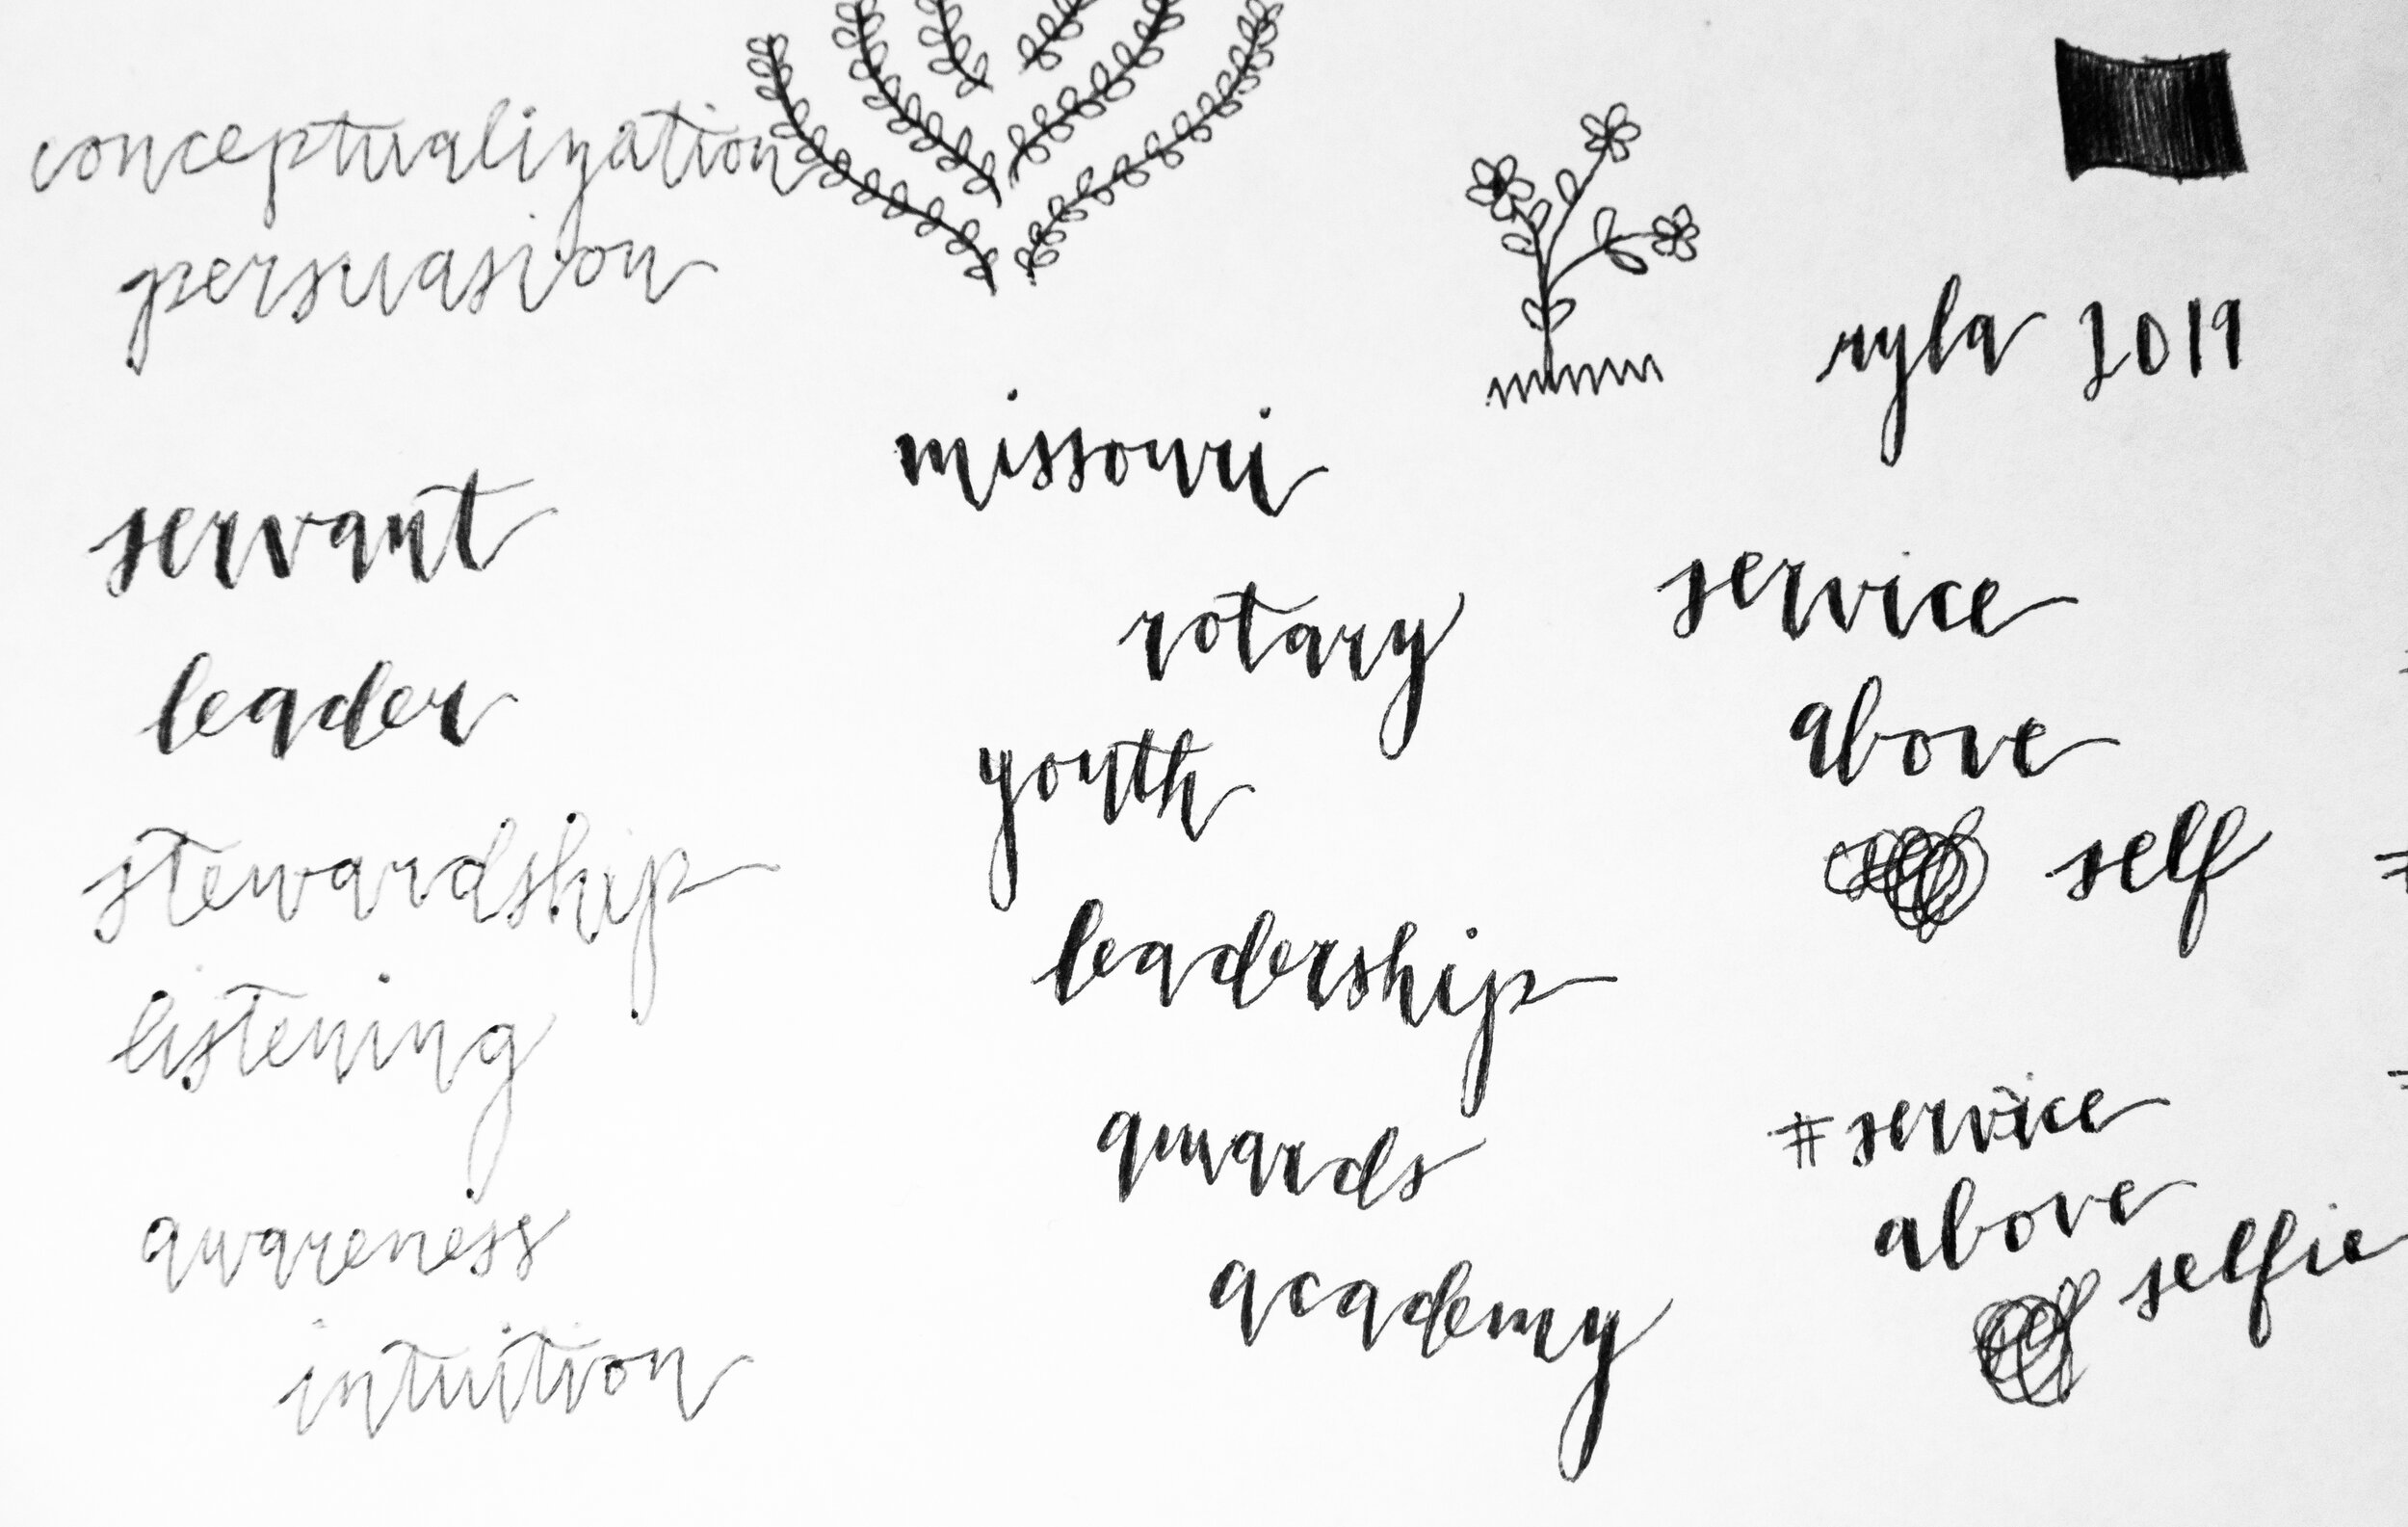 conceptualization
persuasion
servant
leader
stewardship
listening
awareness
intuition
missouri
rotary
youth
leadership
awards
academy
ryla 2019
service
above
self
#service
above
selfie